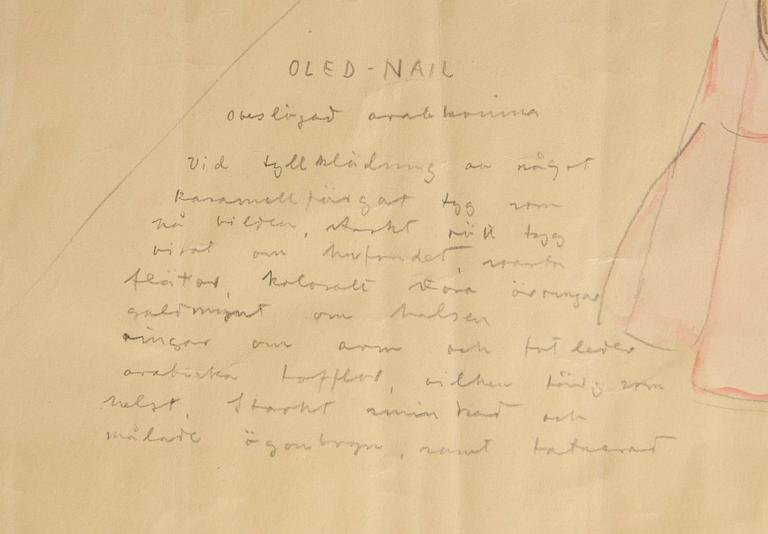 OLED-NAIL
obeslöjad arabkvinna
Vid tyll klädning av något
karamellfärgat tyg som
på bilden, starkt rött tyg
virat om huvudet, svarta
flätor, kolosalt stora örringar
guldmynt om halsen
ringar om arm och fotleder
arabiska tofflor, vilken färg som
helst. Starkt sminkad och
målade ögonbryn, samt tatuerad